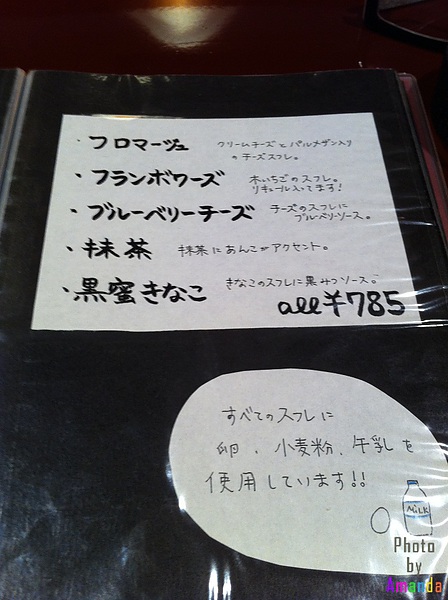 ・フロマージュ クリームチーズとパルメザン入り
のチーズスフレ。
・フランボワーズ 木いちごのスフレ。
リキュール入ってます!
・ブルーベリーチーズ チーズのスフレに
ブルーベリーソース。
・抹茶 抹茶にあんこがアクセント。
・黒蜜きなこ きなこのスフレに黒みつソース。
all¥785
すべてのスフレに
卵、小麦粉、牛乳を
使用しています!!
MiLK
Photo
by
Amanda